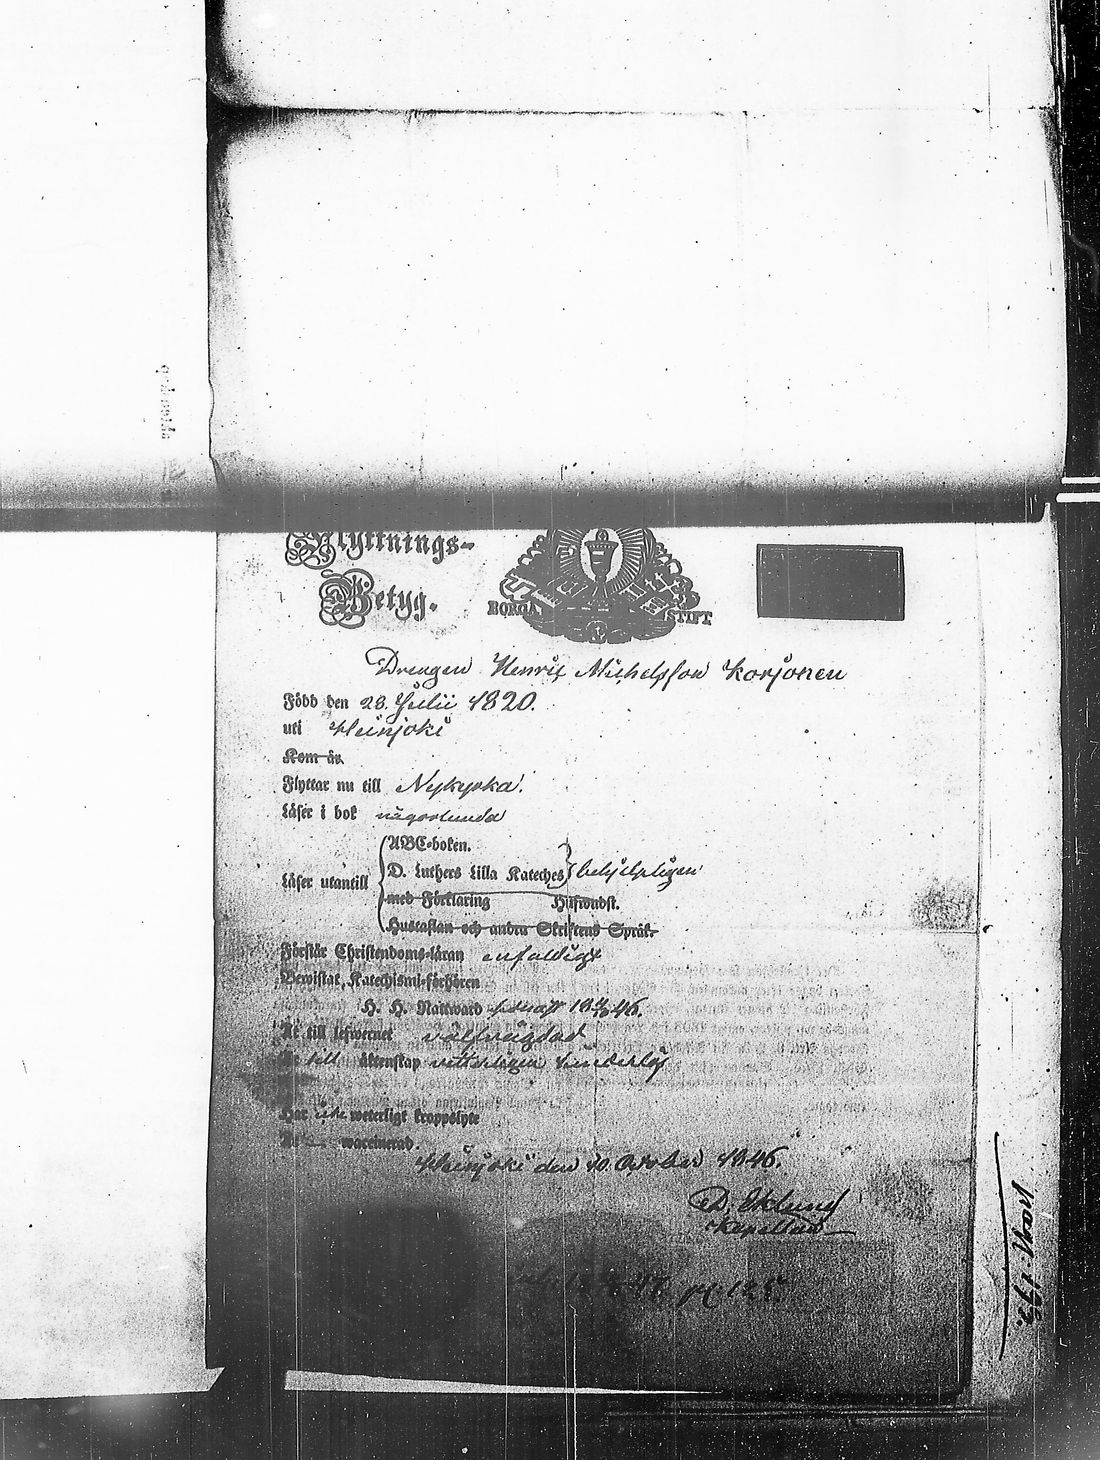 Flyttnings-
Betyg.
BORGÅ STIFT
Drengen Henric Michelsson Korjonen
Född den 28. Julii 1820.
uti Heinjoki
Kom år
Flyttar nu till Nykyrka.
Läser i bok någorlunda
Läser utantill
ABC-boken.
D. Luthers Lilla Kateches behjelpligen
med Förklaring
Hustaflan och andra Skriftens Språk.
Förstår Christendoms-läran enfaldigt
Bewistat Katechismi-förhören
H. H. Nattward senast 18 46.
Är till lefwernet välfrägdad
till äktenskap vetterligen hinderlös
Har icke weterligt kroppslyte
Är waccinerad.
Heinjoki den 10 October 1846.
D. Eklund
Kapellan
pag. 125.